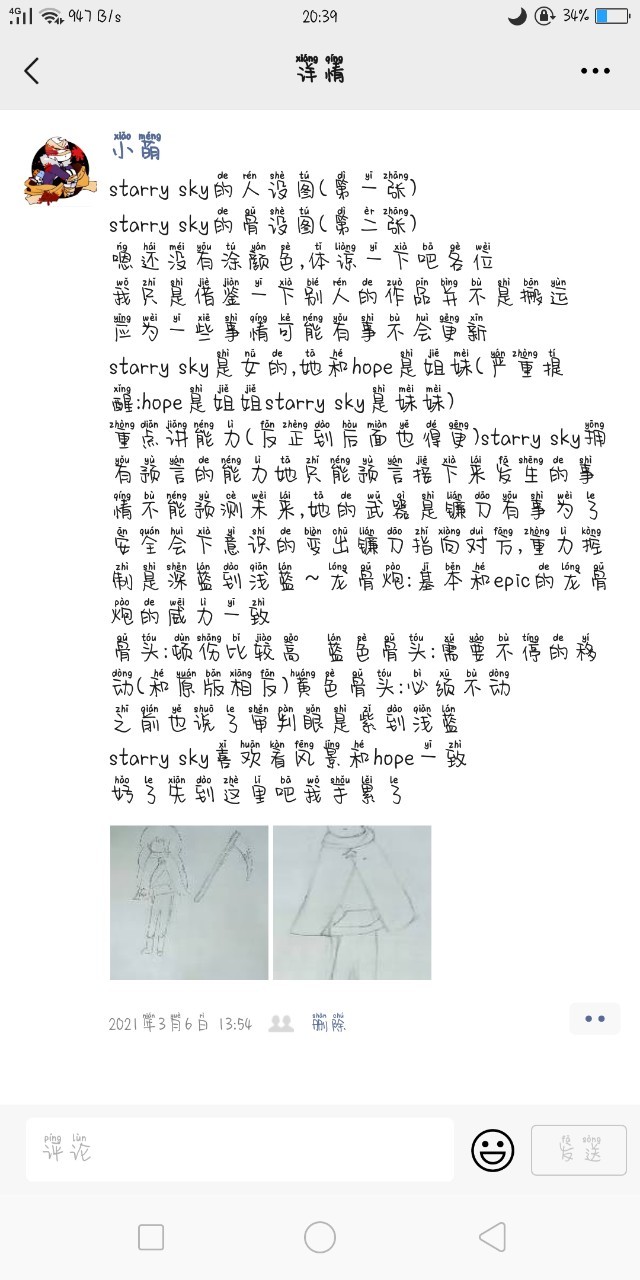 4G 947 B/s 20:39 34%
详情
小萌
starry sky的人设图(第一张)
starry sky的骨设图(第二张)
嗯还没有涂颜色,体谅一下吧各位
我只是借鉴一下别人的作品并不是搬运
应为一些事情可能有事不会更新
starry sky是女的,她和hope是姐妹(严重提
醒:hope是姐姐starry sky是妹妹)
重点讲能力(反正到后面也得更)starry sky拥
有预言的能力她只能预言接下来发生的事
情不能预测未来,她的武器是镰刀有事为了
安全会下意识的变出镰刀指向对方,重力控
制是深蓝到浅蓝~龙骨炮:基本和epic的龙骨
炮的威力一致
骨头:顿伤比较高 蓝色骨头:需要不停的移
动(和原版相反)黄色骨头:必须不动
之前也说了审判眼是紫到浅蓝
starry sky喜欢看风景和hope一致
好了先到这里吧我手累了
2021年3月6日 13:54 删除
评论 发送